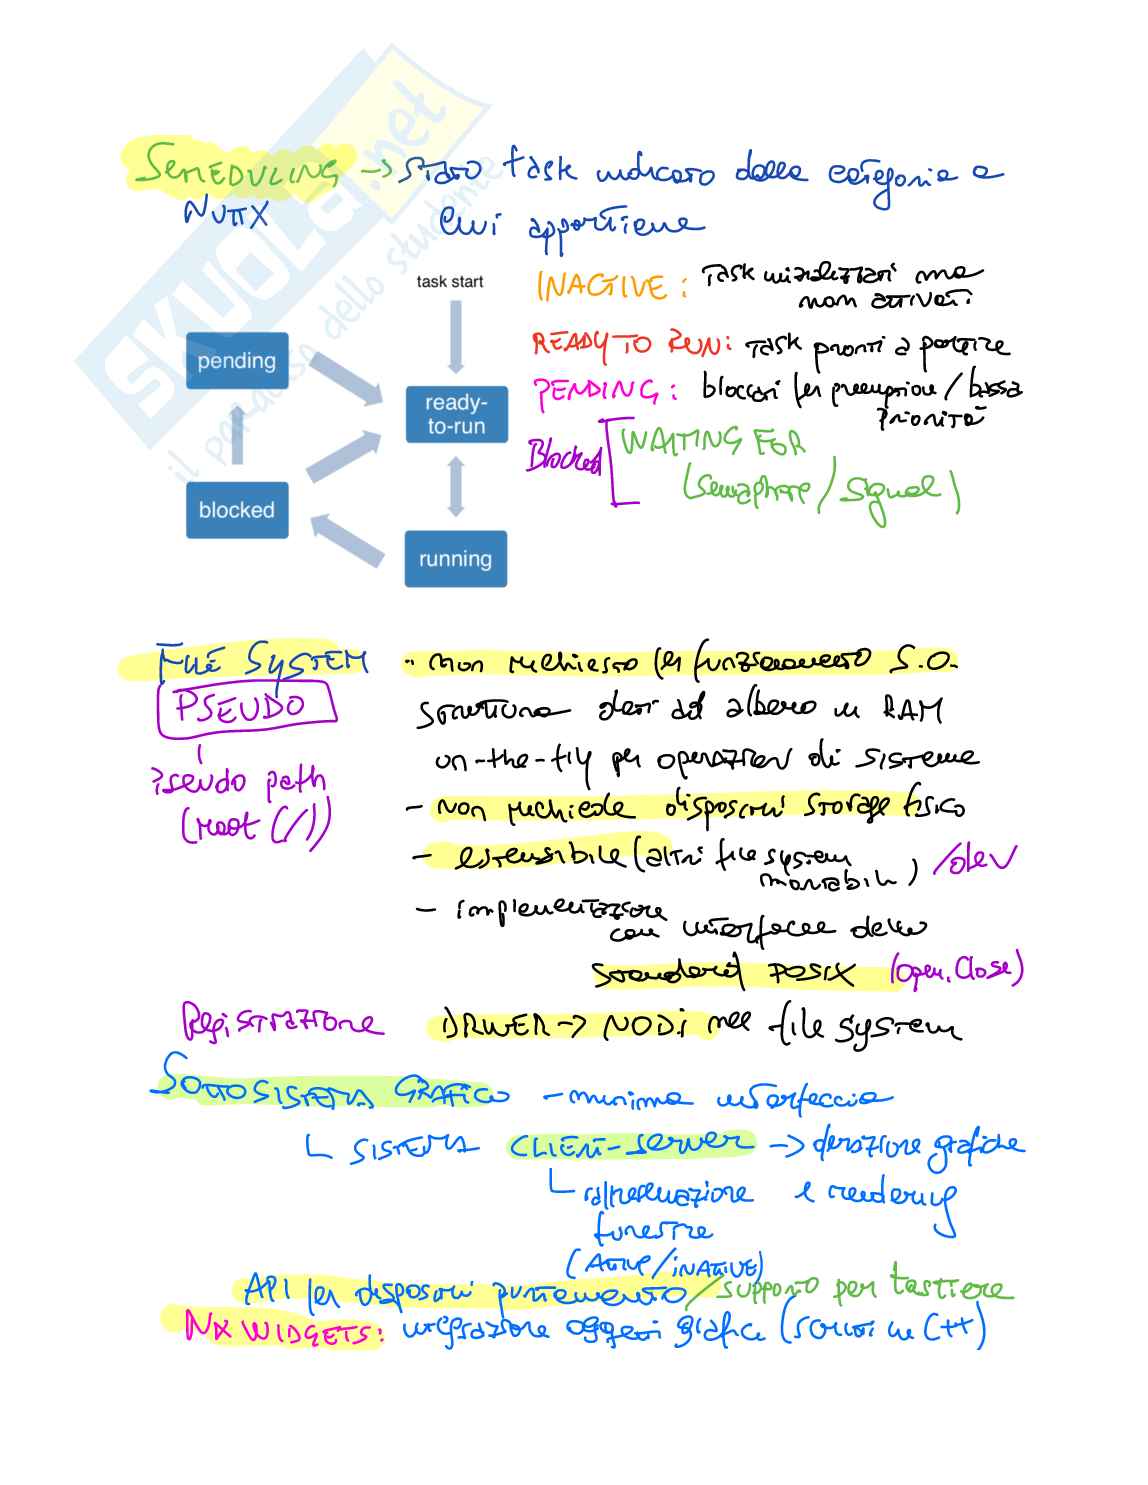 SCHEDULING → Stato task indicato dalla categoria a
NUTTX cui appartiene
task start
INACTIVE : Task inizializzati ma
non attivati
pending
READY TO RUN: Task pronti a partire
ready-
to-run
PENDING : bloccati per preemption / bassa
priorità
Blocked WAITING FOR
(semaphore / signal)
blocked
running
FILE SYSTEM - non richiesto per funzionamento S.O.
PSEUDO struttura dati ad albero in RAM
on-the-fly per operazioni di sistema
pseudo path
(root (/))
- non richiede dispositivi storage fisico
- estensibile (altri file system
montabili) /dev
- implementazione
con interfacce dello
standard POSIX (open, close)
Registrazione DRIVER → NODI nel file system
SOTTOSISTEMA GRAFICO - minima interfaccia
SISTEMA CLIENT-SERVER → operazione grafiche
e rendering
finestre
(ATTIVE/INATTIVE)
API per dispositivi puntamento / supporto per tastiere
NX WIDGETS: integrazione oggetti grafici (scritti in C++)
SKUOLA.net
il paradiso dello studente